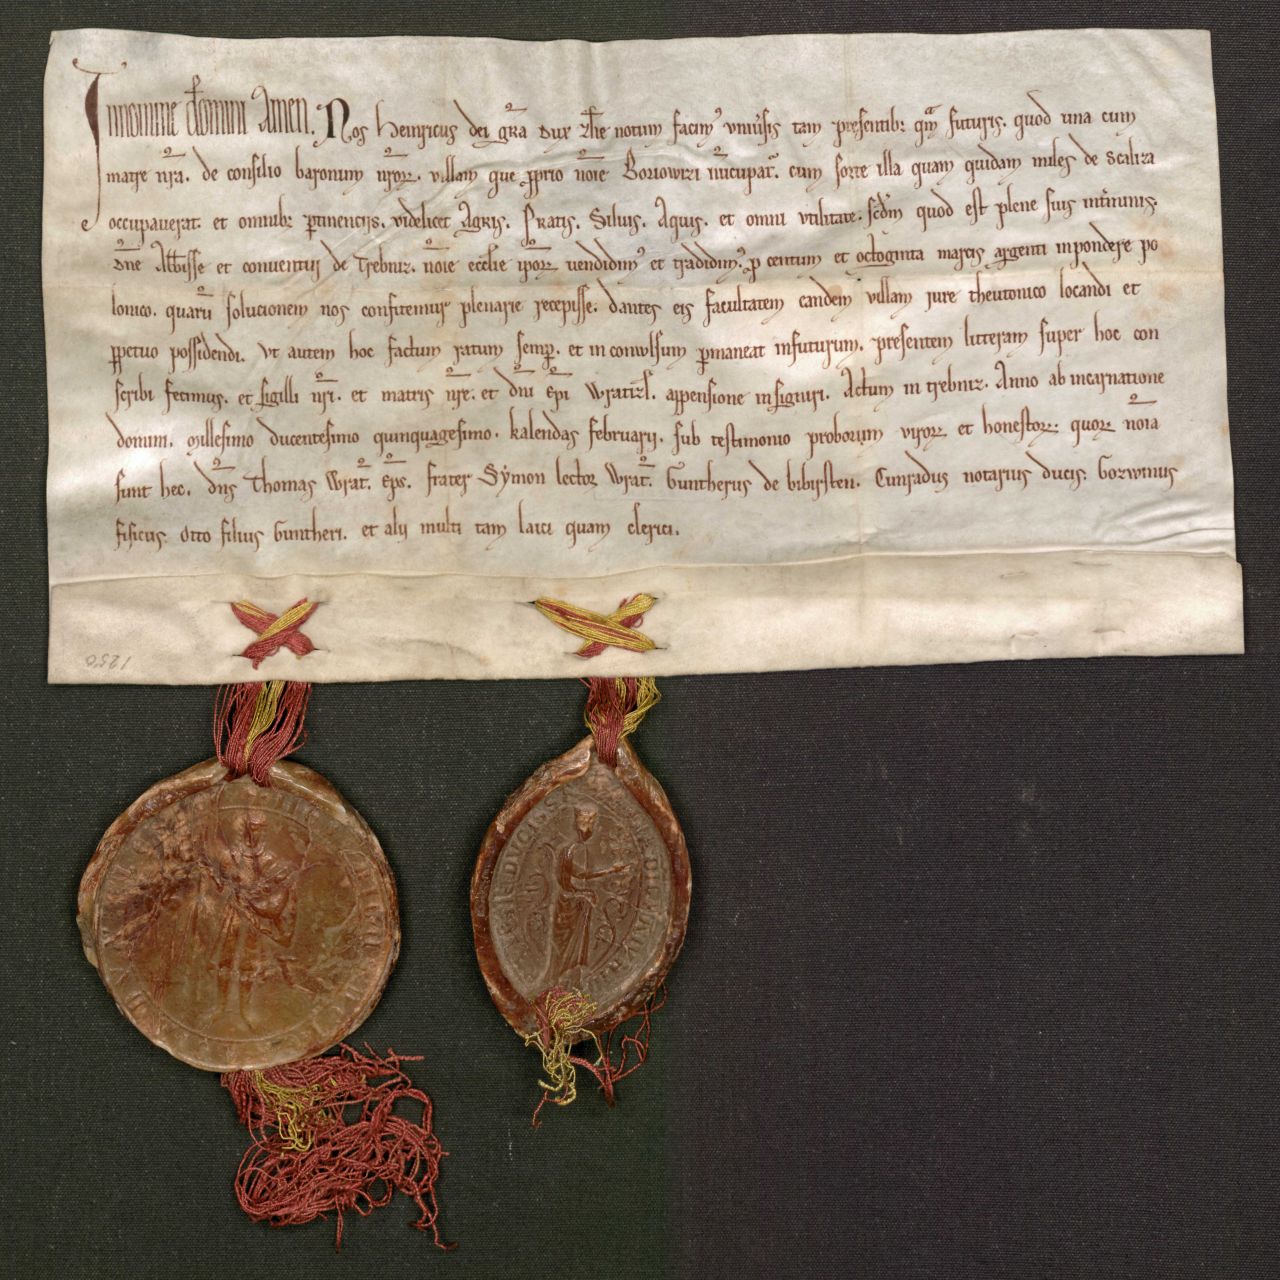 In nomine domini Amen. Nos Heinricus dei gra dux Zlie notum facim9 univsis tam presentib; qm futuris. quod una cum
matre nra. de consilio baronum nror. villam que pprio noie Borowizi nucupat. cum sorte illa quam quidam miles de Scaliza
occupauerat. et omnib; ptinenciis. videlicet Agris. Pratis. Siluis. Aquis. et omni utilitate. scdm quod est plene suis
dne Abbisse et conuentui de Trebniz. noie ecclie ipor uendidim9 et tradidim9. p centum et octoginta marcis argenti in pondere po
lonico. quaru solucionem nos confitemur plenarie recepisse. dantes eis facultatem eandem villam iure theutonico locandi et
ppetuo possidendi. Vt autem hoc factum ratum semp. et in conwlsum pmaneat in futurum. presentem litteram super hoc con
scribi fecimus. et sigilli nri. et matris nre. et dni epi Wratizl. appensione insigniri. Actum in trebniz. Anno ab incarnatione
domini. Millesimo ducentesimo quinquagesimo. kalendas februarii. sub testimonio proborum viror et honestor. quor noia
sunt hec. dns Thomas Wrat. eps. frater Symon lector Wrat. Guntherus de bibirsten. Cunradus notarius ducis. Gozwinus
fisicus. Otto filius Guntheri. et alii multi tam laici quam clerici.
1250